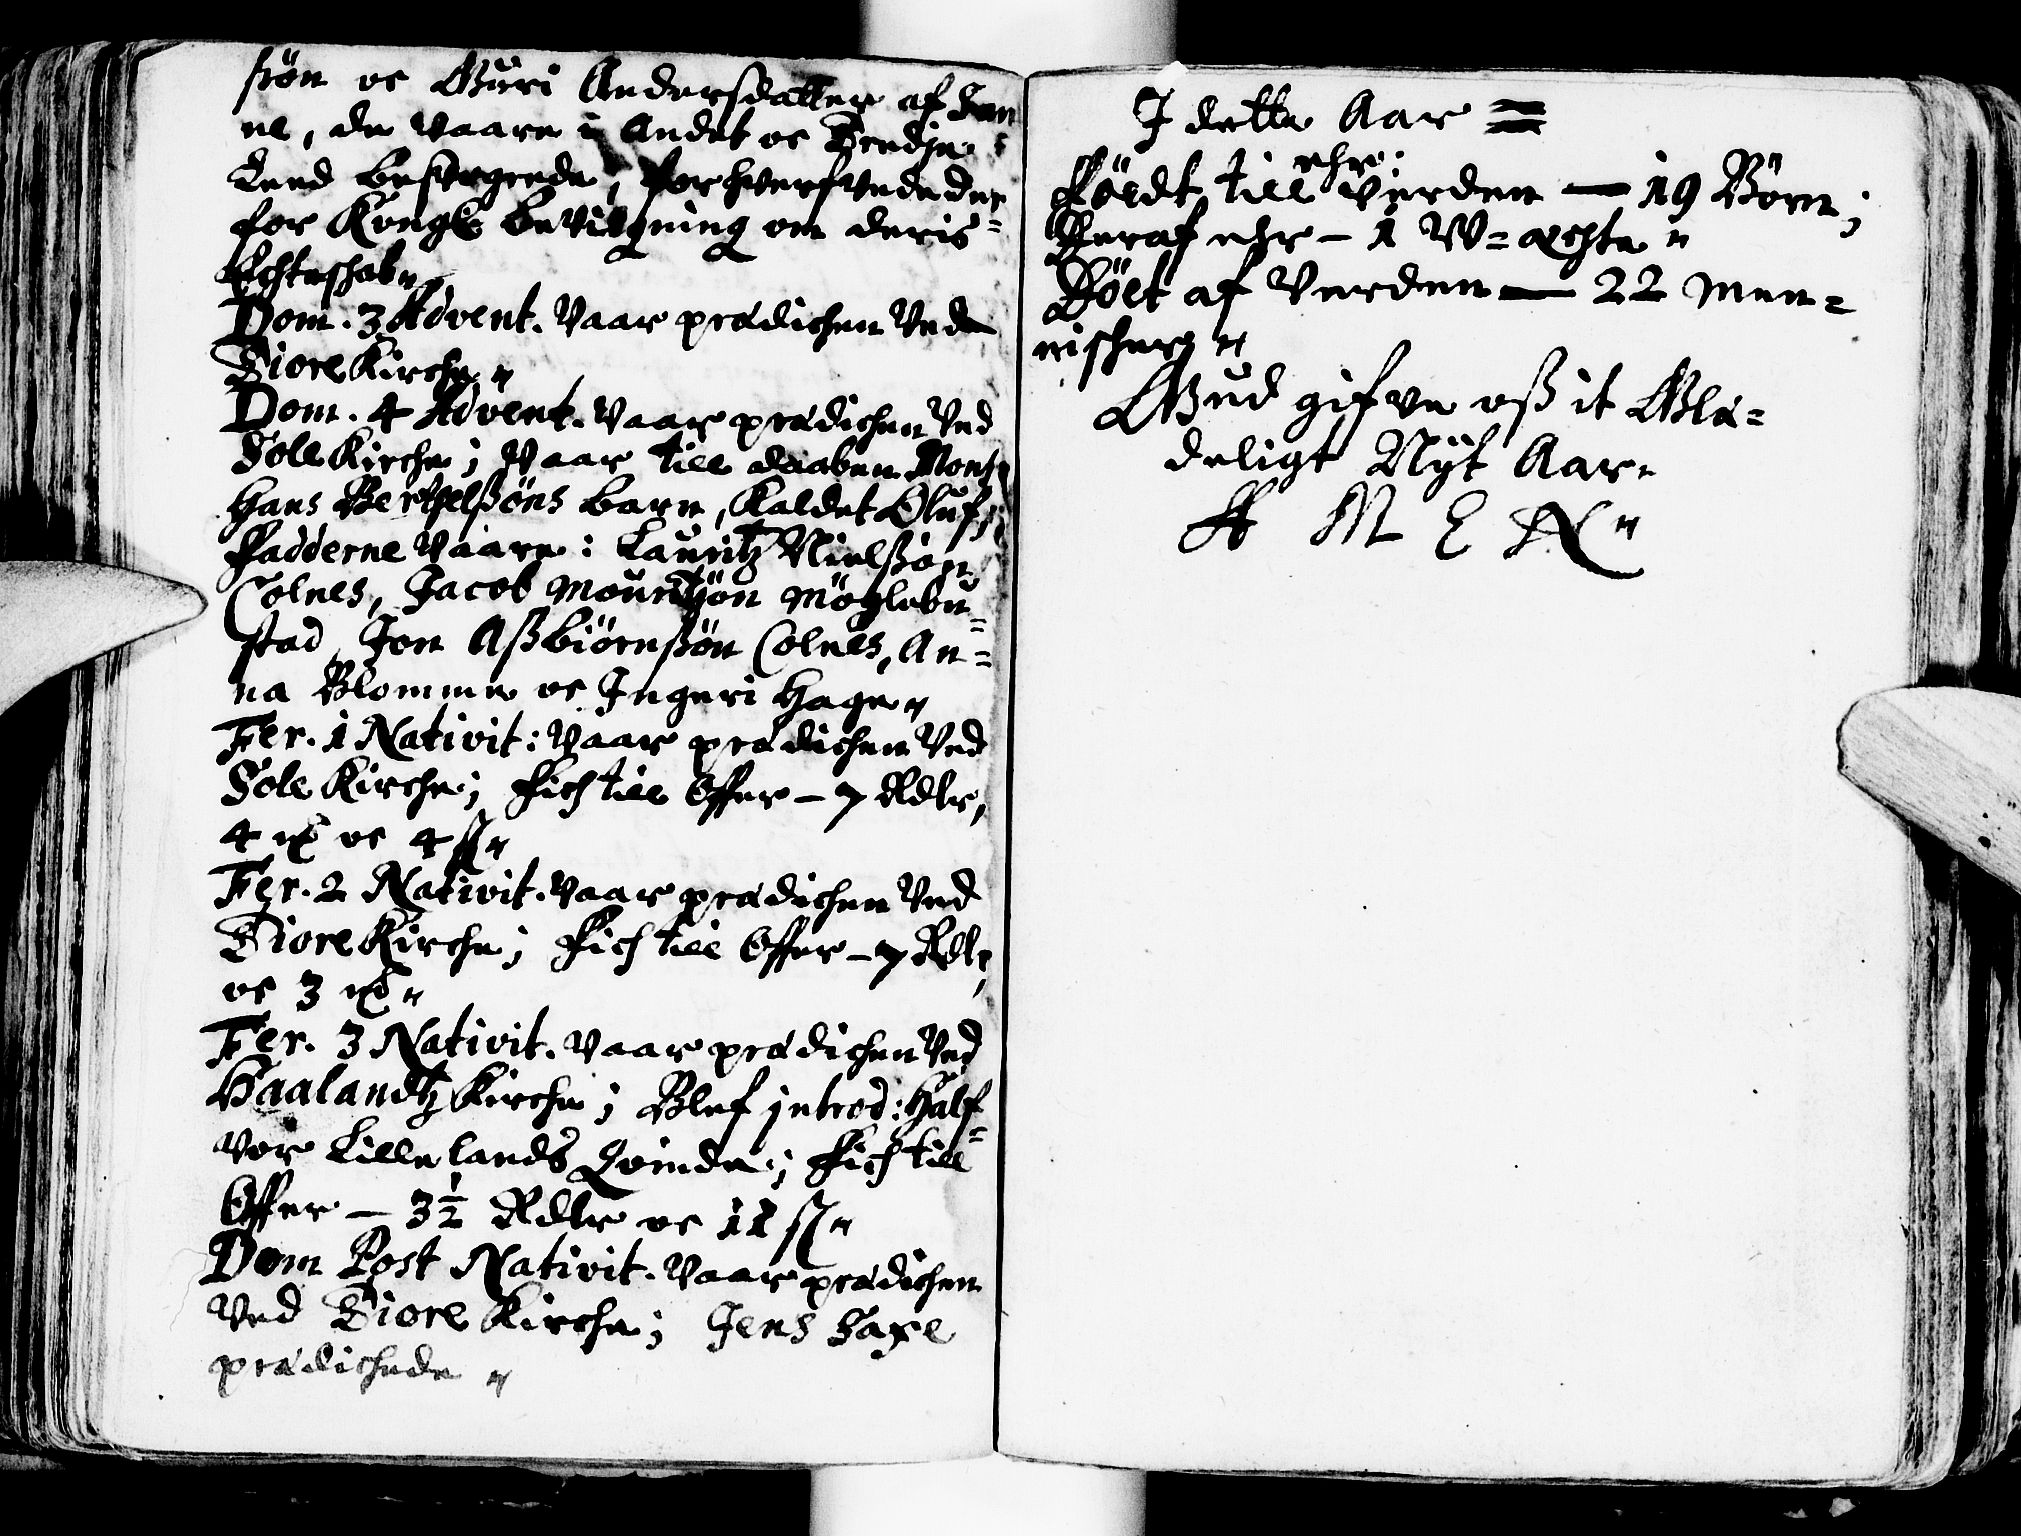 ßön oc Guri Andersdatter af Jan
ne, de vaare i Andet oc Tredje
Leed besvogrede, forhverfvede der
for Kongl bevilgning om deris
Echteskab„
Dom. 3 Advent. vaar prædichen ved
Tiore Kirche„
Dom. 4 Advent. vaar prædichen ved
Sole Kirche; vaar till daaben Mons
Hans Berthelßöns barn, kaldet Oluf;
Fadderne vaare: Lauritz Nielßön
Colnes, Jacob Mouritzön Möglebu=
stad, Jon Aßbiörnßön Colnes, An=
na Blomme oc Ingeri Hage„
Fer. 1 Nativit: vaar prædichen ved
Sole Kirche; Fich till Offer – 7 Rdlr,
4 mk oc 4 ß„
Fer. 2 Nativit. vaar prædichen ved
Tiore Kirche; Fich till Offer – 7 Rdlr,
oc 3 mk„
Fer. 3 Nativit. vaar prædichen ved
Haalandtz Kirche; Blef introd: Half=
vor Lille lands Qvinde; Fich till
Offer – 3½ Rdlr oc 11 ß„
Dom Post Nativit. vaar prædichen
ved Tiore Kirche; Jens Saxe
prædichede„
I dette Aar =
ehr:
Föedt till Verden — 19 Börn;
Deraf ehr – 1 W=ægte„
Döet af Verden — 22 Men=
nischer„
Gud gifve oß it Glæ=
deligt Nyt Aar„
A M E N„